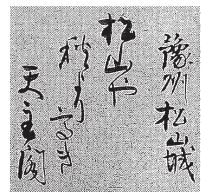 豫州松山城
松山や
秋より高き
天主閣